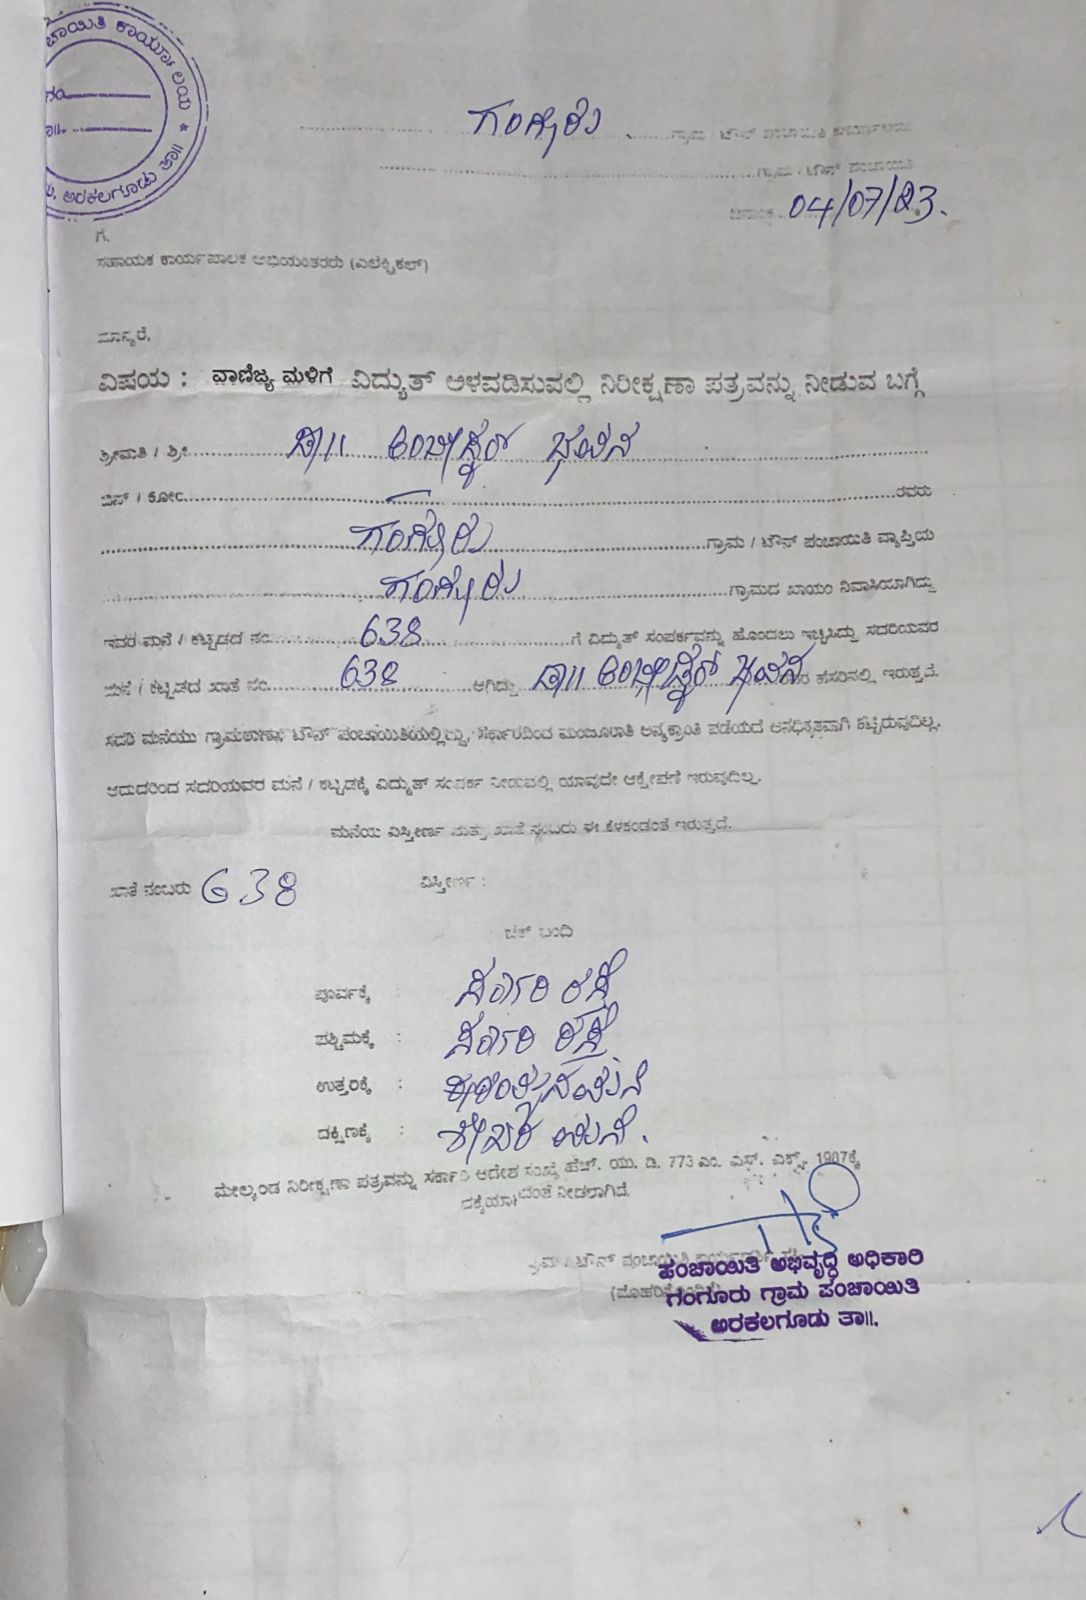 ಚಾಯಿತಿ ಕಾರ್ಯಾಲಯ * ತಾ॥ ಅರಕಲಗೂಡು
ಗಂಗೂರು . ಗ್ರಾಮ / ಟೌನ್ ಪಂಚಾಯಿತಿ ಕಾರ್ಯಾಲಯ
ಗ್ರಾಮ / ಟೌನ್ ಪಂಚಾಯಿತಿ
ದಿನಾಂಕ 04/07/23.
ಗೆ,
ಸಹಾಯಕ ಕಾರ್ಯಪಾಲಕ ಅಭಿಯಂತರರು (ಎಲೆಕ್ಟ್ರಿಕಲ್)
ಮಾನ್ಯರೆ,
ವಿಷಯ : ವಾಣಿಜ್ಯ ಮಳಿಗೆ ವಿದ್ಯುತ್ ಅಳವಡಿಸುವಲ್ಲಿ ನಿರೀಕ್ಷಣಾ ಪತ್ರವನ್ನು ನೀಡುವ ಬಗ್ಗೆ
ಶ್ರೀಮತಿ / ಶ್ರೀ ಡಾ॥ ಅಂಬೇಡ್ಕರ್ ಭವನ
ಬಿನ್ / ಕೋಂ ರವರು
ಗಂಗೂರು ಗ್ರಾಮ / ಟೌನ್ ಪಂಚಾಯಿತಿ ವ್ಯಾಪ್ತಿಯ
ಗಂಗೂರು ಗ್ರಾಮದ ಖಾಯಂ ನಿವಾಸಿಯಾಗಿದ್ದು
ಇವರ ಮನೆ / ಕಟ್ಟಡದ ನಂ 638 ಗೆ ವಿದ್ಯುತ್ ಸಂಪರ್ಕವನ್ನು ಹೊಂದಲು ಇಚ್ಚಿಸಿದ್ದು ಸದರಿಯವರ
ಮನೆ / ಕಟ್ಟಡದ ಖಾತೆ ನಂ 638 ಆಗಿದ್ದು ಡಾ॥ ಅಂಬೇಡ್ಕರ್ ಭವನ ರವರ ಹೆಸರಿನಲ್ಲಿ ಇರುತ್ತದೆ.
ಸದರಿ ಮನೆಯು ಗ್ರಾಮಠಾಣಾ, ಟೌನ್ ಪಂಚಾಯಿತಿಯಲ್ಲಿದ್ದು, ಸರ್ಕಾರದಿಂದ ಮಂಜೂರಾತಿ ಅನ್ಯಕ್ರಾಂತಿ ಪಡೆಯದೆ ಅನಧಿಕೃತವಾಗಿ ಕಟ್ಟಿರುವುದಿಲ್ಲ.
ಆದುದರಿಂದ ಸದರಿಯವರ ಮನೆ / ಕಟ್ಟಡಕ್ಕೆ ವಿದ್ಯುತ್ ಸಂಪರ್ಕ ನೀಡುವಲ್ಲಿ ಯಾವುದೇ ಆಕ್ಷೇಪಣೆ ಇರುವುದಿಲ್ಲ.
ಮನೆಯ ವಿಸ್ತೀರ್ಣ ಮತ್ತು ಖಾತೆ ನಂಬರು ಈ ಕೆಳಕಂಡಂತೆ ಇರುತ್ತದೆ.
ಖಾತೆ ನಂಬರು 638 ವಿಸ್ತೀರ್ಣ :
ಚಕ್ ಬಂದಿ
ಪೂರ್ವಕ್ಕೆ : ಸರ್ಕಾರಿ ರಸ್ತೆ
ಪಶ್ಚಿಮಕ್ಕೆ : ಸರ್ಕಾರಿ ರಸ್ತೆ
ಉತ್ತರಕ್ಕೆ : ಮನೆ
ದಕ್ಷಿಣಕ್ಕೆ : ಮನೆ.
ಮೇಲ್ಕಂಡ ನಿರೀಕ್ಷಣಾ ಪತ್ರವನ್ನು ಸರ್ಕಾರಿ ಆದೇಶ ಸಂಖ್ಯೆ ಹೆಚ್. ಯು. ಡಿ. 773 ಎಂ. ಎಸ್. ಎಕ್ಸ್. 1987ಕ್ಕೆ
ನೀಡಲಾಗಿದೆ.
ಟೌನ್ ಪಂಚಾಯಿತಿ
ಪಂಚಾಯಿತಿ ಅಭಿವೃದ್ಧಿ ಅಧಿಕಾರಿ
ಗಂಗೂರು ಗ್ರಾಮ ಪಂಚಾಯಿತಿ
ಅರಕಲಗೂಡು ತಾ॥.